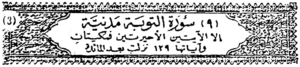 (٩) سورة التوبة مدنية
الا الآيتين الأخيرتين فمكيتان
وآياتها ١٢٩ نزلت بعد المائدة
(3)